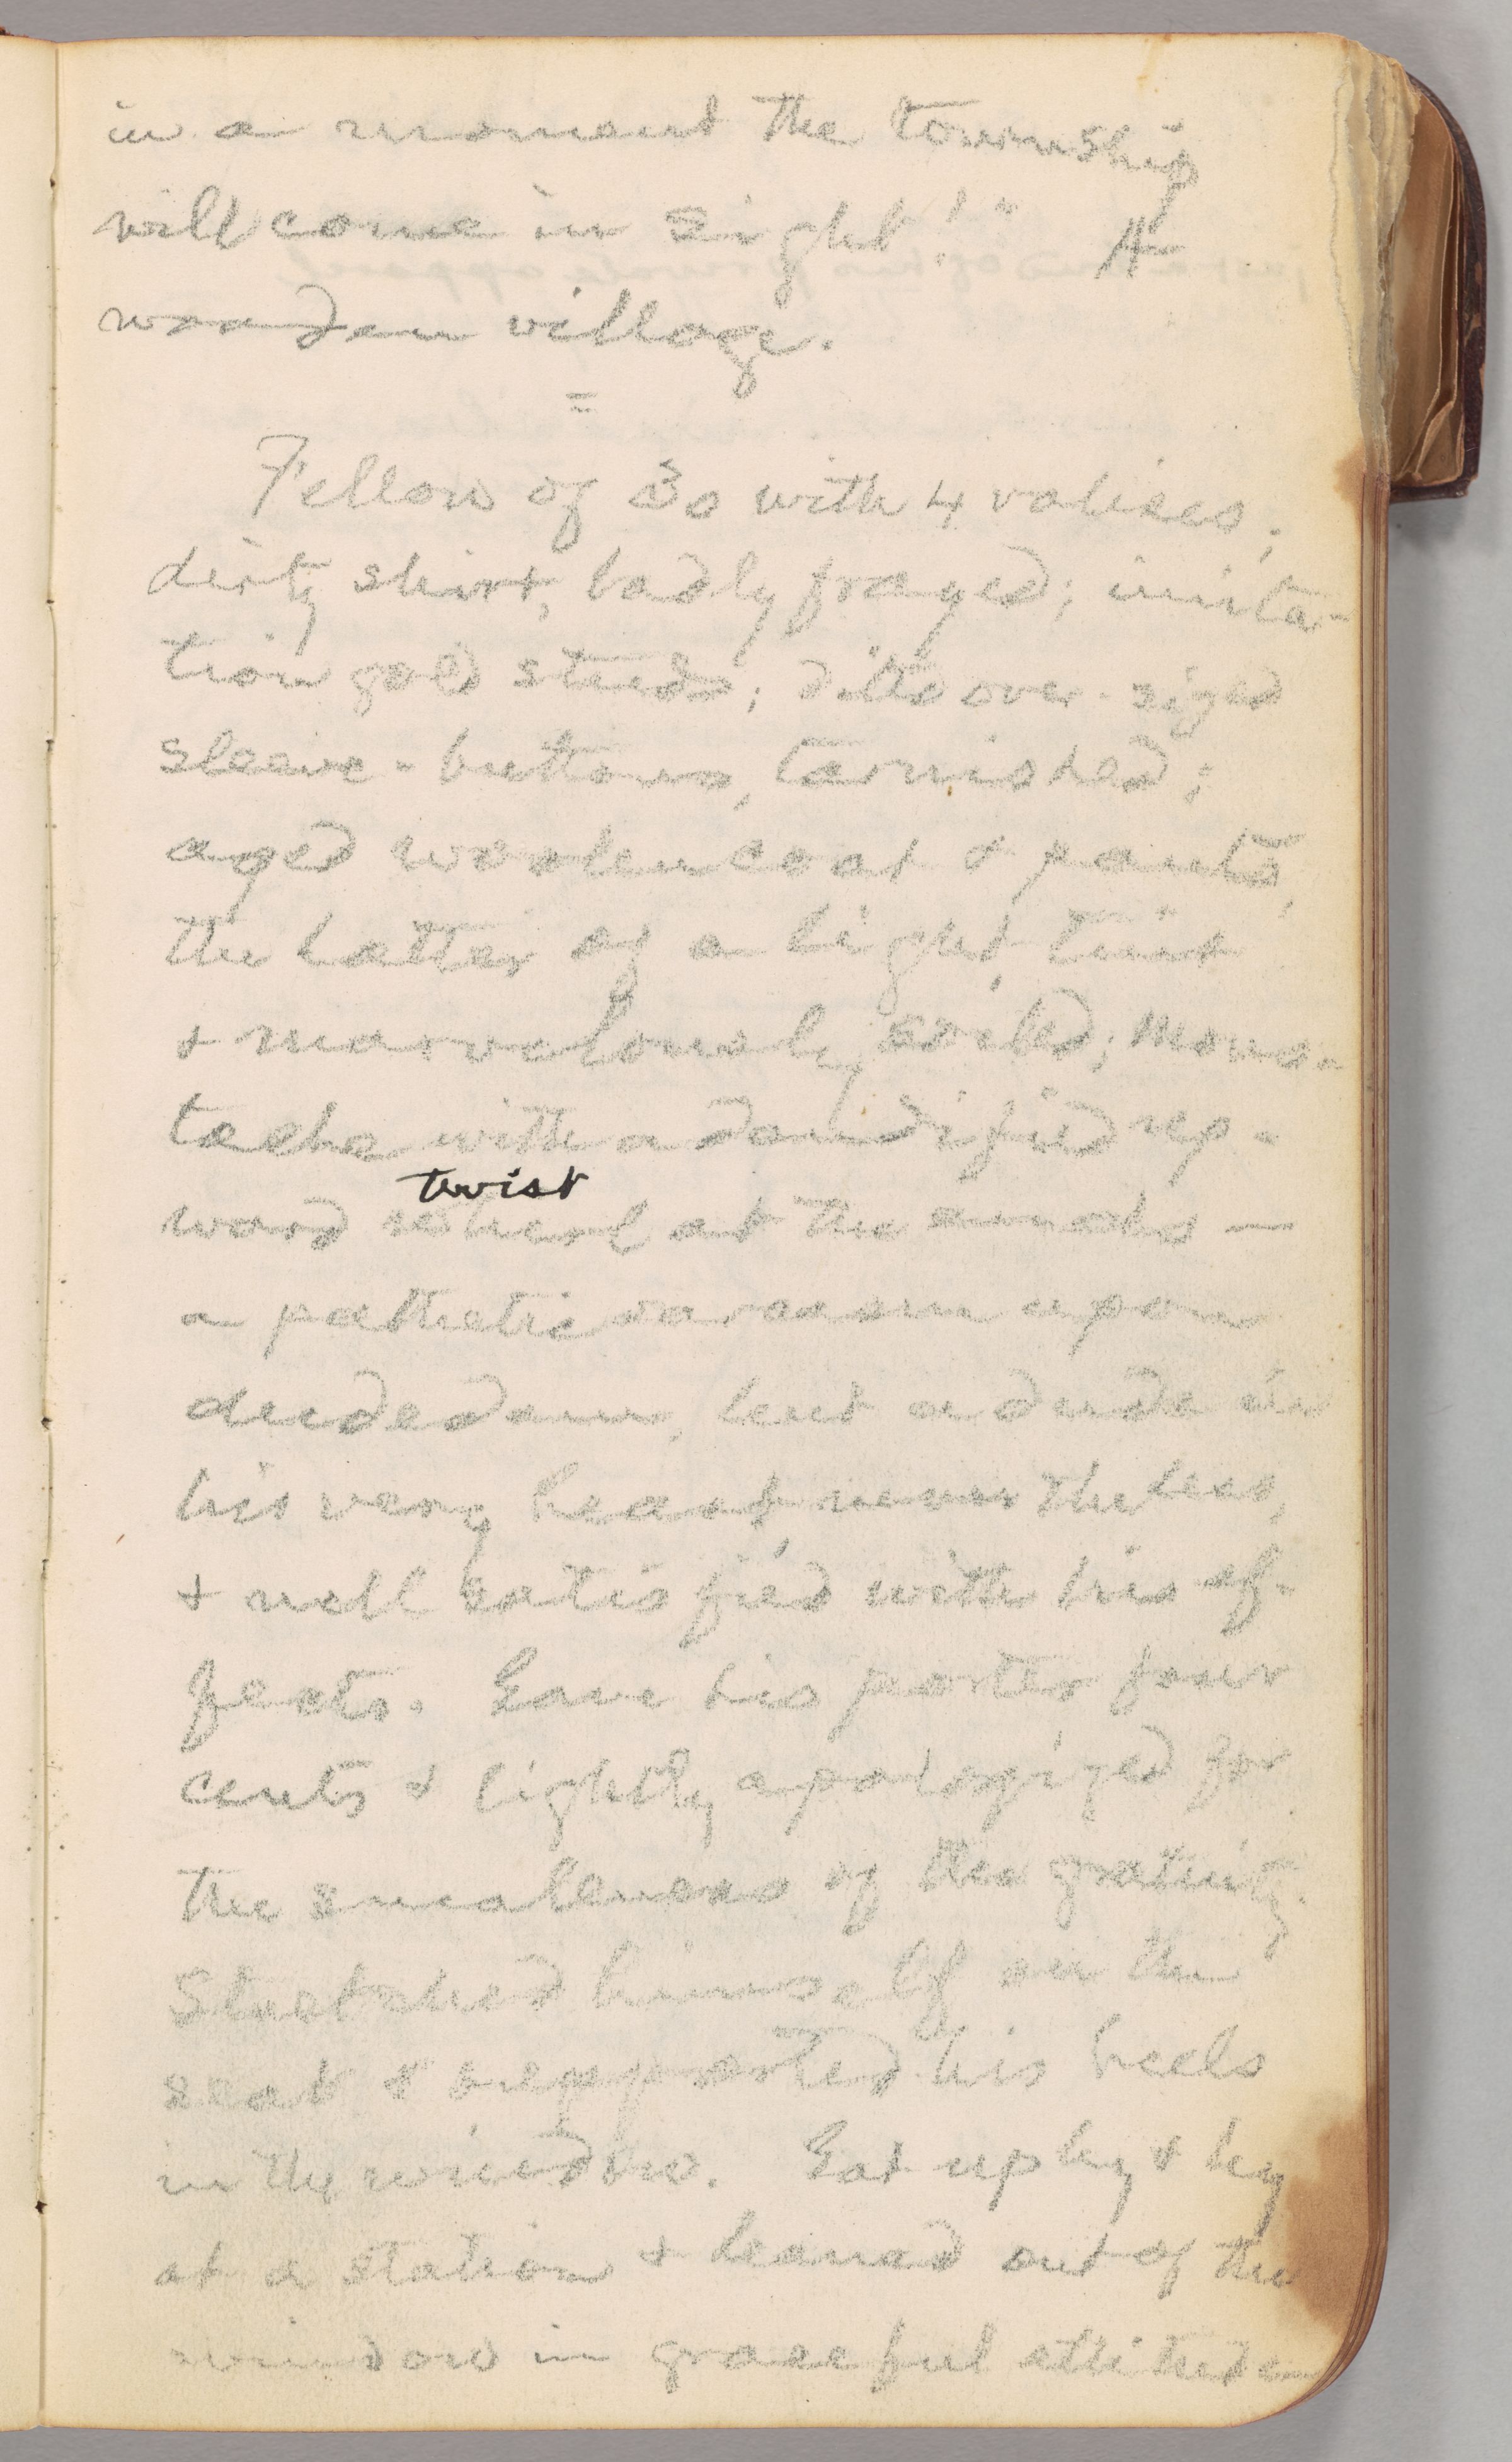 in a moment the township
will come in sight!" A
wooden village.
=
Fellow of 30 with 4 valises;
dirty shirt, badly frayed; imita-
tion gold studs; ditto over-sized
sleeve-buttons, tarnished;
aged woolen coat & pants,
the latter of a light tint
& marvelously soiled; mous-
tache with a dandified up-
twist
ward whirl at the ends —
a pathetic sarcasm upon
dudedom, but a dude in
his very heart, nevertheless,
& well satisfied with his ef-
fects. Gave his porter four
cents & lightly apologized for
the smallness of the gratuity.
Stretched himself on the
seat & supported his heels
in the window. Got up by & by
at a station & leaned out of the
window in graceful attitude